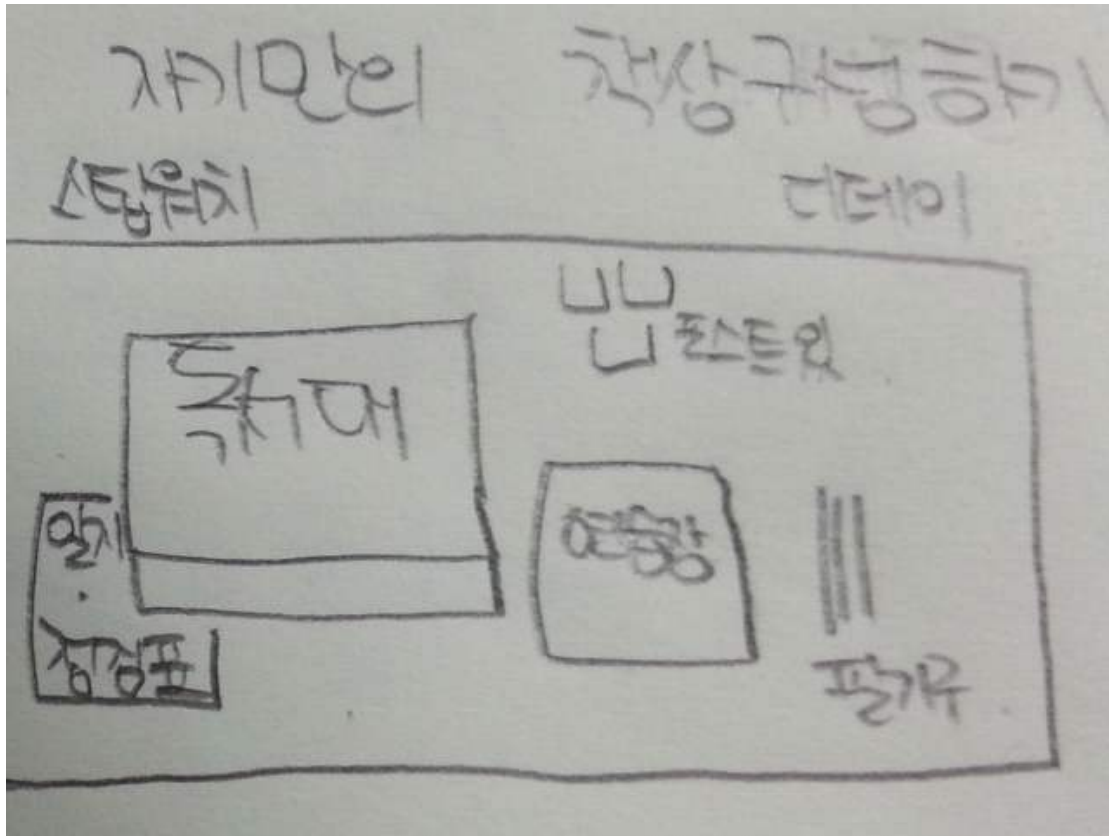 자기만의 책상구성하기
스탑워치 디데이
포스트잇
독서대
연습장
일지
·
점검표
필기구